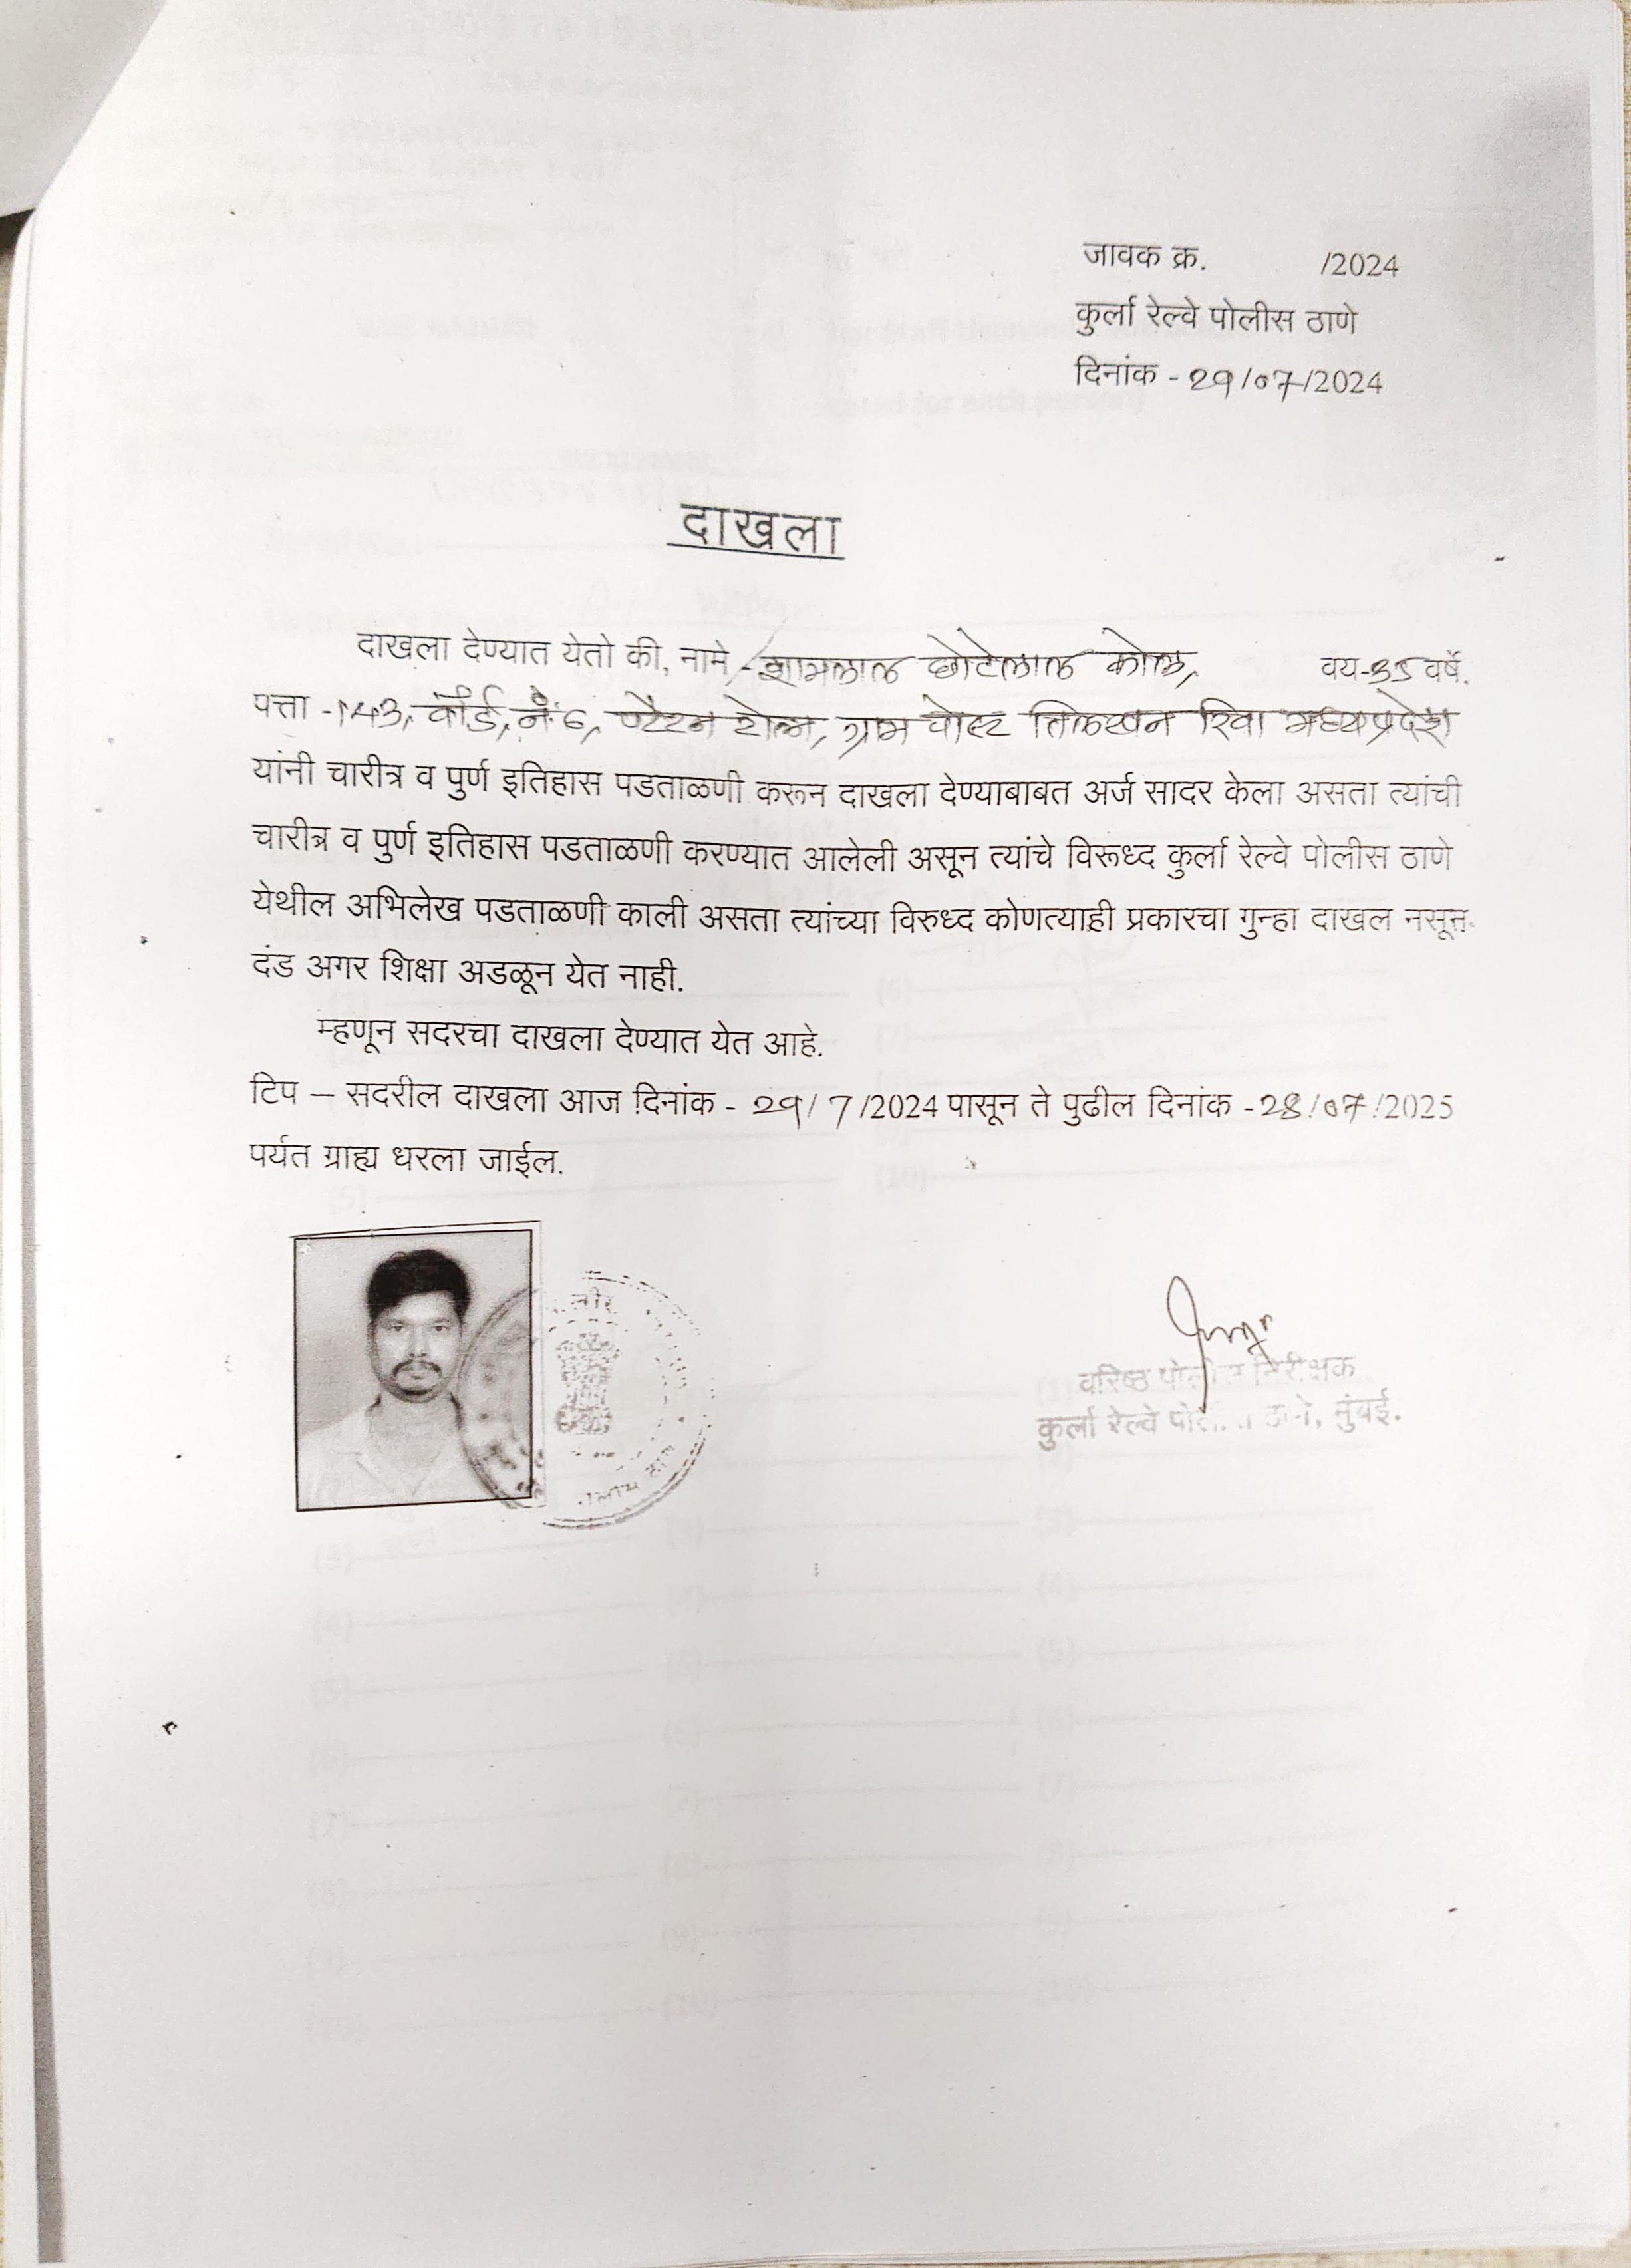 जावक क्र. /2024
कुर्ला रेल्वे पोलीस ठाणे
दिनांक - 29/07/2024
दाखला
दाखला देण्यात येतो की, नामे - छोटेलाल कोल, वय-35 वर्षे.
पत्ता -143, वॉर्ड, नं. 6, टोला, ग्राम पोस्ट रिवा मध्यप्रदेश
यांनी चारीत्र व पुर्ण इतिहास पडताळणी करून दाखला देण्याबाबत अर्ज सादर केला असता त्यांची
चारीत्र व पुर्ण इतिहास पडताळणी करण्यात आलेली असून त्यांचे विरूध्द कुर्ला रेल्वे पोलीस ठाणे
येथील अभिलेख पडताळणी काली असता त्यांच्या विरुध्द कोणत्याही प्रकारचा गुन्हा दाखल नसून
दंड अगर शिक्षा अडळून येत नाही.
म्हणून सदरचा दाखला देण्यात येत आहे.
टिप – सदरील दाखला आज दिनांक - 29/7/2024 पासून ते पुढील दिनांक -28/07/2025
पर्यत ग्राह्य धरला जाईल.
वरिष्ठ पोलीस निरीक्षक
कुर्ला रेल्वे पोलीस ठाणे, मुंबई.